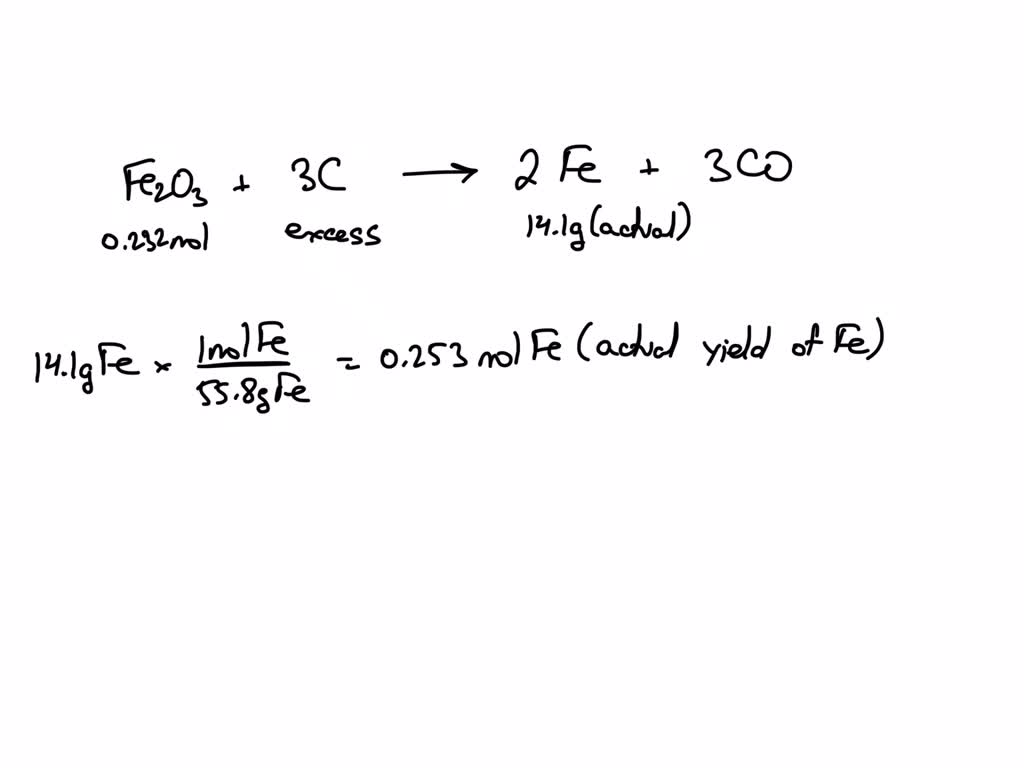 Fe₂O₃ + 3C → 2 Fe + 3CO
0.232mol excess 14.1g (actual)
14.1g Fe × 1mol Fe / 55.8g Fe = 0.253 mol Fe (actual yield of Fe)